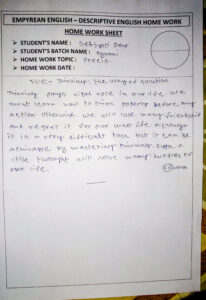 EMPYREAN ENGLISH – DESCRIPTIVE ENGLISH HOME WORK
HOME WORK SHEET
➤ STUDENT'S NAME : Debjyoti Dey
➤ STUDENT'S BATCH NAME :
➤ HOME WORK TOPIC : Precis
➤ HOME WORK DATE :
Title:- Thinking: the way of solution
Thinking plays vital role in our life. We
must learn how to think properly before any
action otherwise we will lose many friendship
and regret it for our whole life. Although
it is a very difficult task but it can be
achievable by mastering thinking. Even a
little thought will solve many hurdles of
our life.